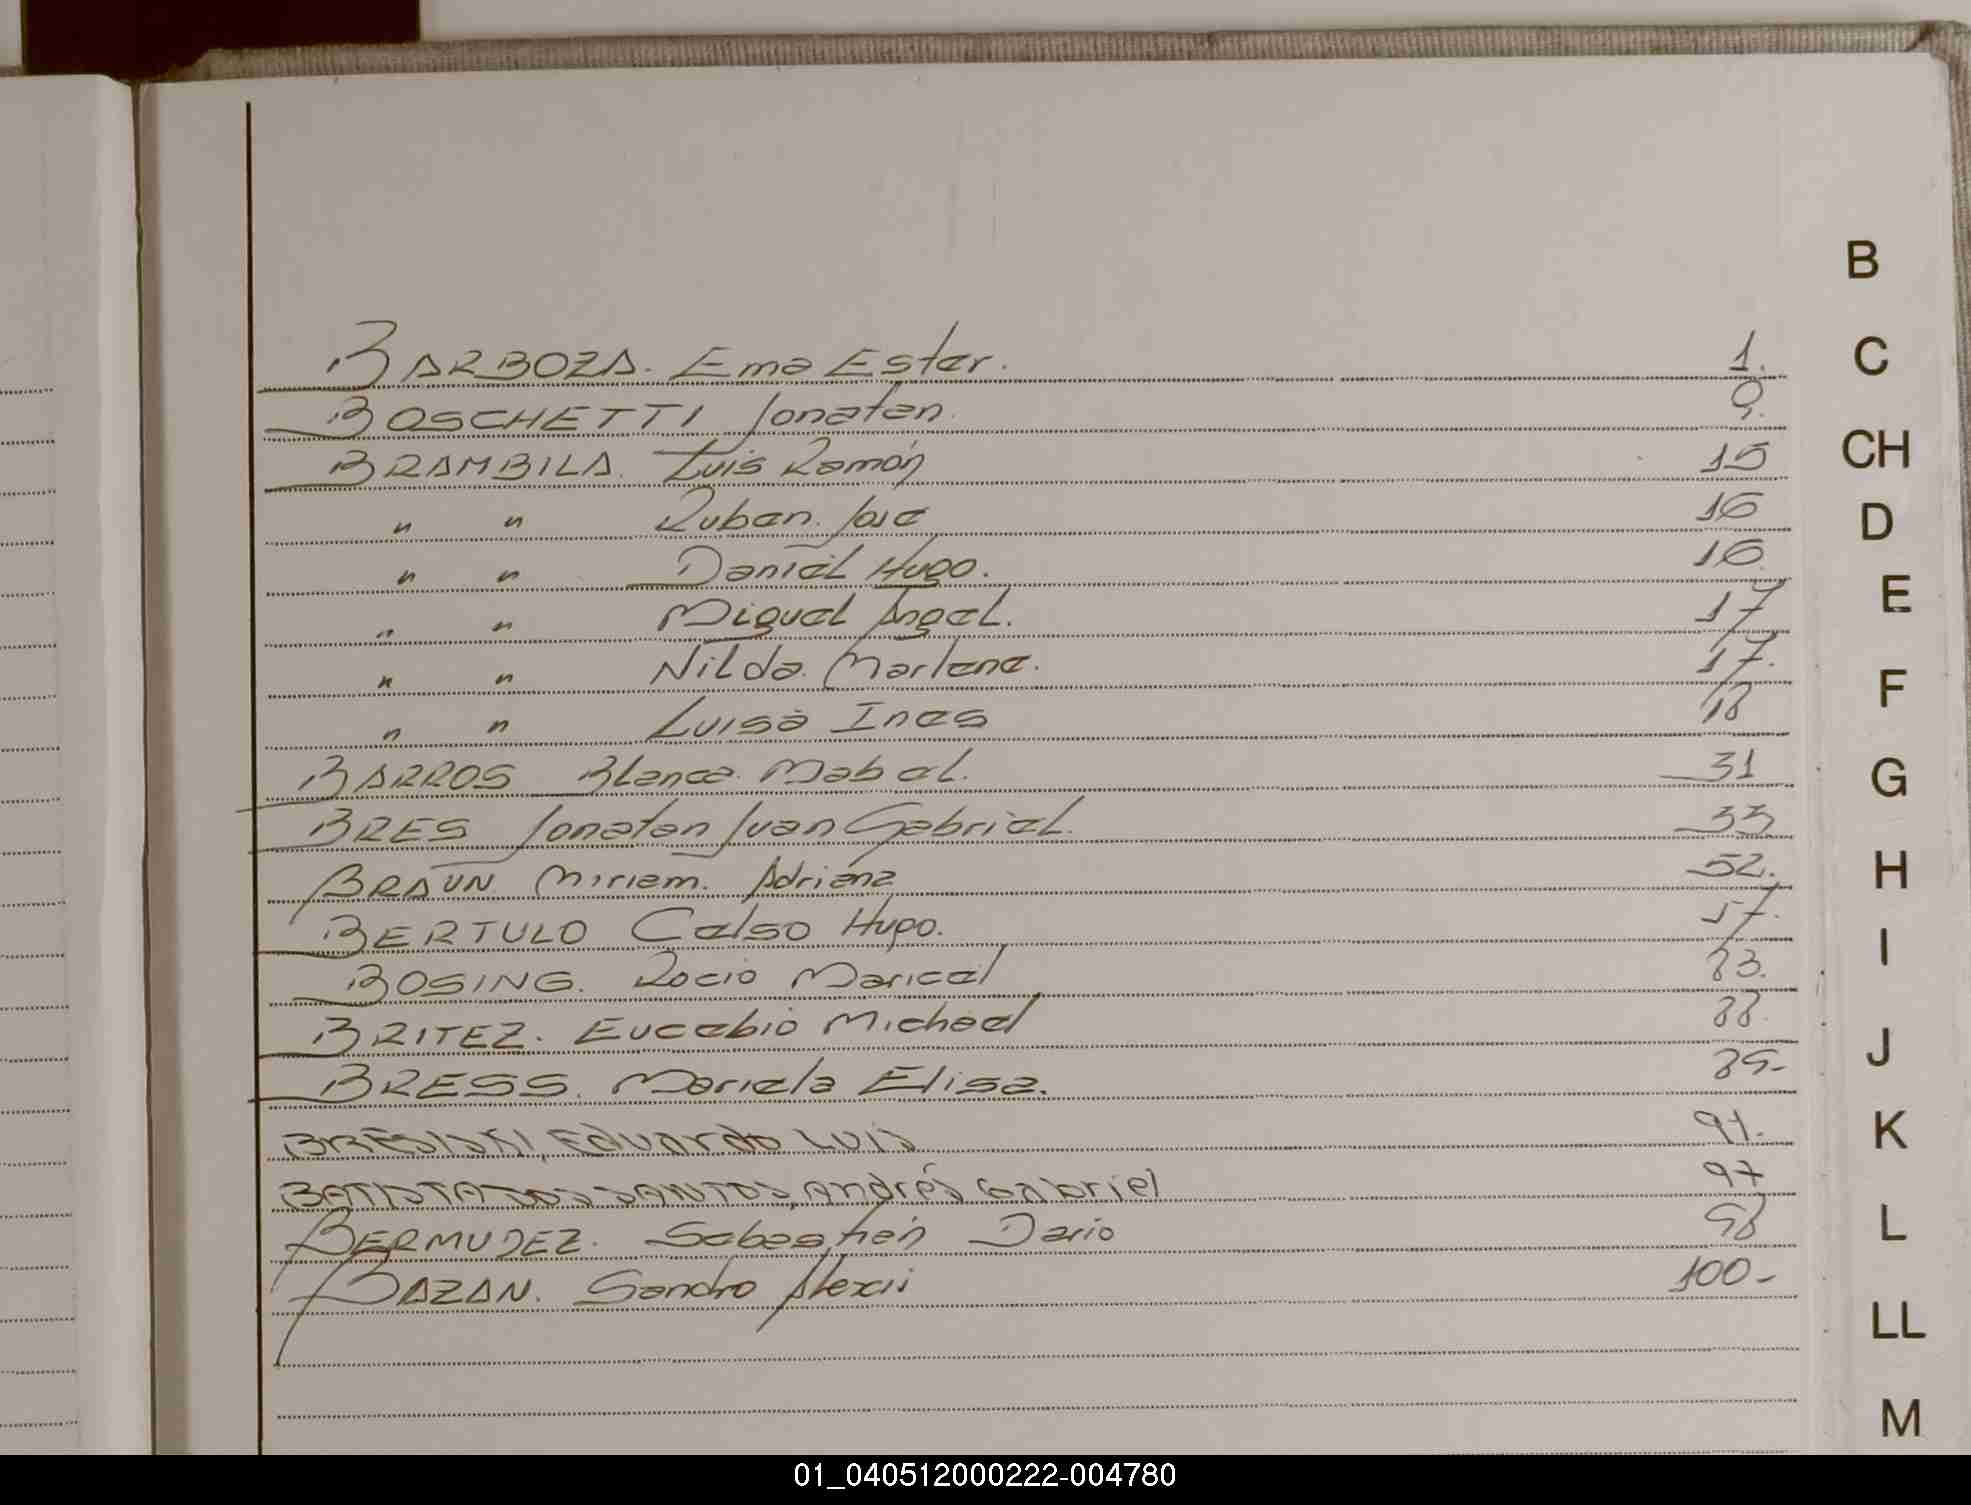 BARBOZA. Ema Ester. 1.
BOSCHETTI Jonatan. 9.
BRAMBILA. Luis Ramón 15
" " Ruben. Jose 16
" " Daniel Hugo. 16.
" " Miguel Angel. 17
" " Nilda. Marlene. 17.
" " Luisa Ines 18
BARROS Blanca. Mabel. 31
BRES Jonatan Juan Gabriel. 33
BRAUN. Miriam. Adriana 52.
BERTULO Celso Hugo. 57.
BOSING. Rocio Maricel 83.
BRITEZ. Eucebio Michael 88.
BRESS. Mariela Elisa. 89-
BRESISKI, Eduardo LUIS 91.
BATISTA DOS SANTOS, Andrés Gabriel 97
BERMUDEZ. Sebastián Dario 98
BAZAN. Sandro Alexis 100-
B
C
CH
D
E
F
G
H
I
J
K
L
LL
M
01_040512000222-004780